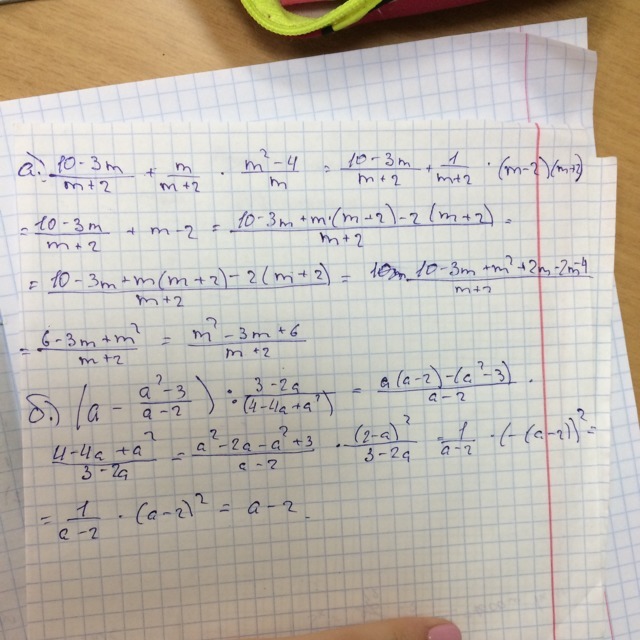 а). (10-3m)/(m+2) + m/(m+2) · (m²-4)/m = (10-3m)/(m+2) + 1/(m+2) · (m-2)(m+2)
= (10-3m)/(m+2) + m-2 = (10-3m+m·(m+2)-2(m+2))/(m+2) =
= (10-3m+m(m+2)-2(m+2))/(m+2) = (10-3m+m²+2m-2m-4)/(m+2)
= (6-3m+m²)/(m+2) = (m²-3m+6)/(m+2)
б.) (a - (a²-3)/(a-2)) : (3-2a)/(4-4a+a²) = (a(a-2)-(a²-3))/(a-2) ·
(4-4a+a²)/(3-2a) = (a²-2a-a²+3)/(a-2) · (2-a)²/(3-2a) = 1/(a-2) · (-(a-2))² =
= 1/(a-2) · (a-2)² = a-2.